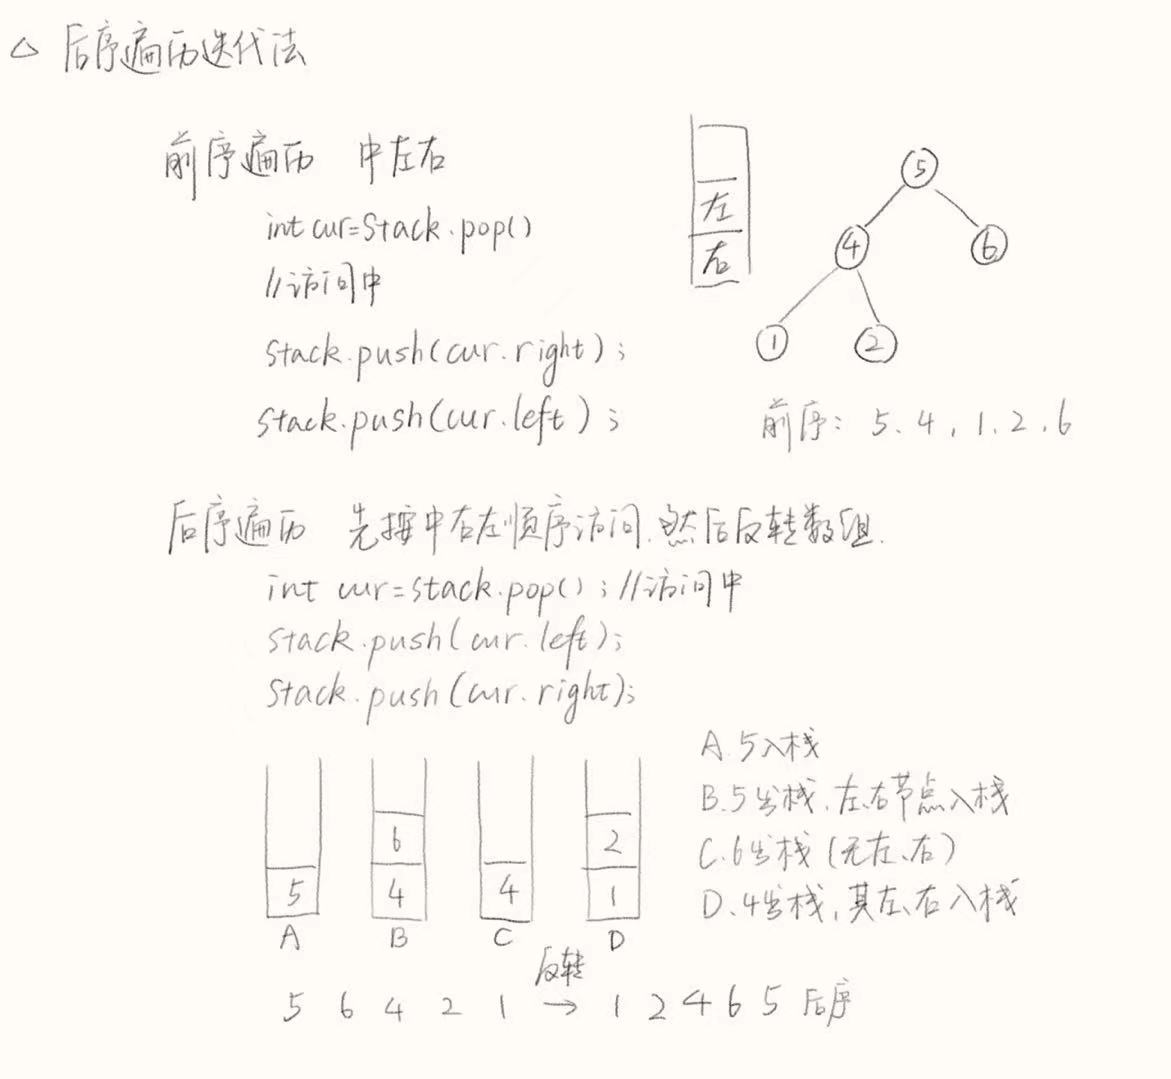 △ 后序遍历迭代法
前序遍历 中左右
int cur=Stack.pop()
//访问中
stack.push(cur.right);
stack.push(cur.left);
左
右
5
4
6
1
2
前序: 5、4、1、2、6
后序遍历 先按中右左顺序访问,然后反转数组.
int cur=stack.pop();//访问中
stack.push(cur.left);
stack.push(cur.right);
5
A
6
4
B
4
C
2
1
D
A.5入栈
B.5出栈,左、右节点入栈
C.6出栈(无左、右)
D.4出栈,其左、右入栈
反转
5 6 4 2 1 → 1 2 4 6 5 后序